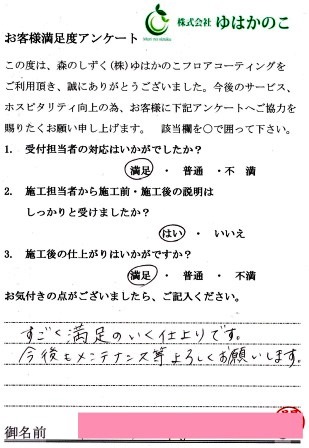 株式会社 ゆはかのこ
お客様満足度アンケート
この度は、森のしずく(株)ゆはかのこフロアコーティングを
ご利用頂き、誠にありがとうございました。今後のサービス、
ホスピタリティ向上の為、お客様に下記アンケートへご協力を
賜りたくお願い申し上げます。 該当欄を○で囲って下さい。
1. 受付担当者の対応はいかがでしたか?
満足 ・ 普通 ・不 満
2. 施工担当者から施工前・施工後の説明は
しっかりと受けましたか?
はい ・ いいえ
3. 施工後の仕上がりはいかがですか?
満足 ・ 普通 ・ 不満
お気付きの点がございましたら、ご記入ください。
すごく満足のいく仕上りです。
今後もメンテナンス等よろしくお願いします。
御名前